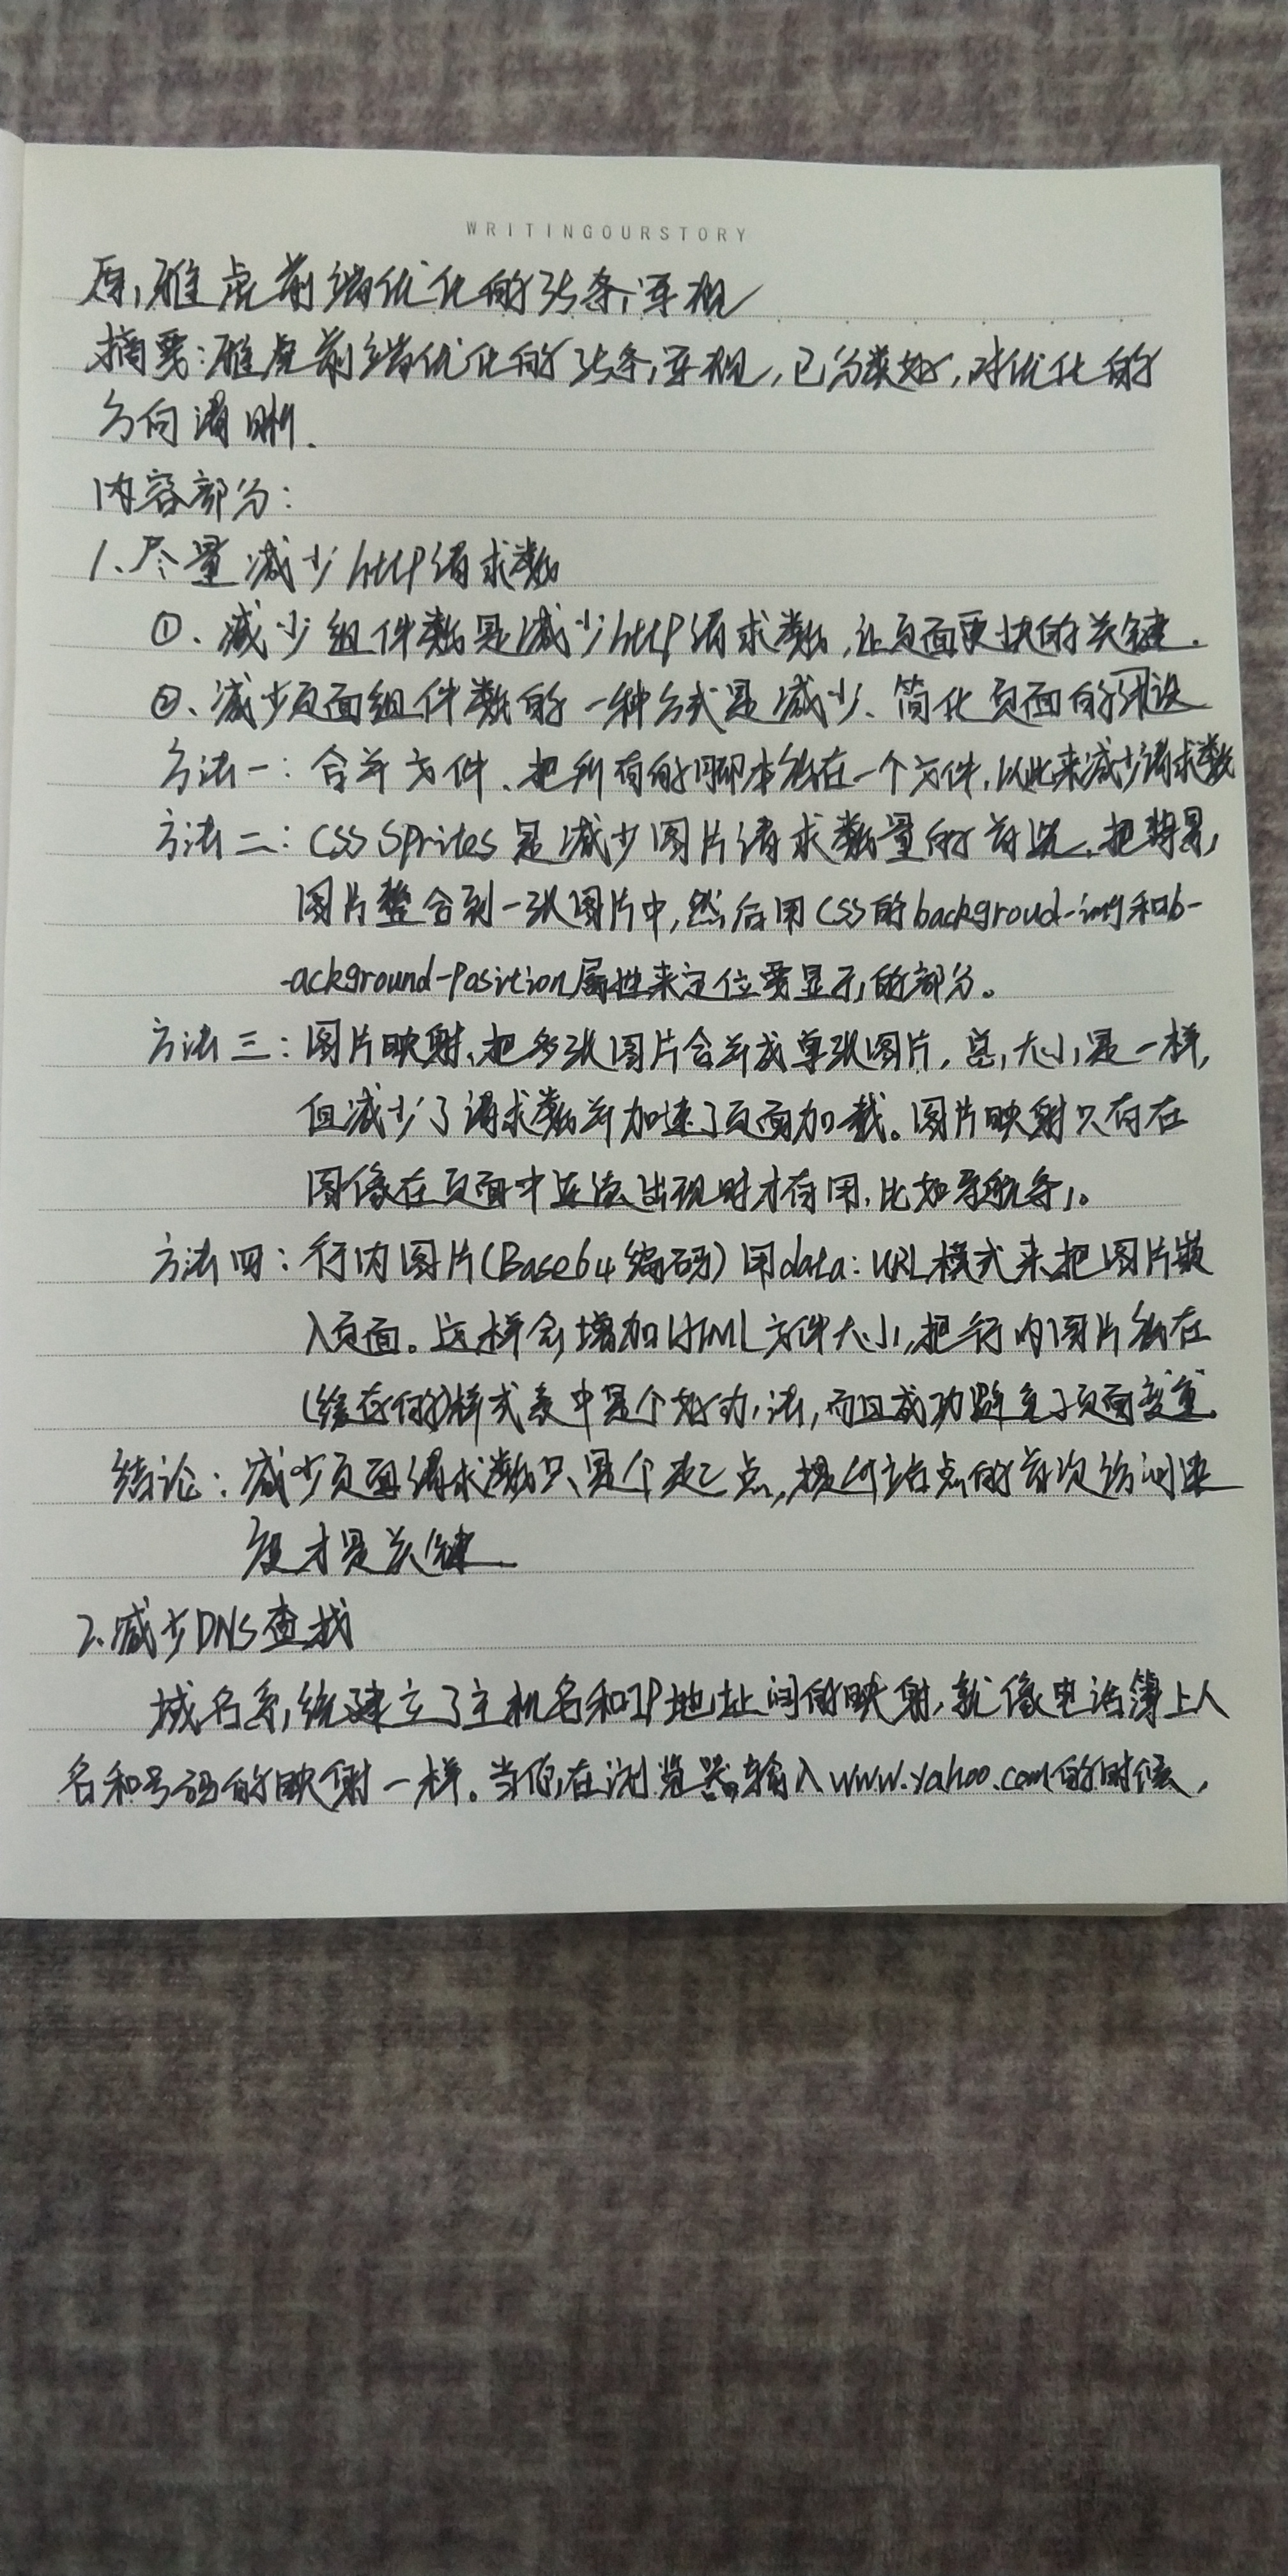 WRITINGOURSTORY
原,雅虎前端优化的35条军规
摘要:雅虎前端优化的35条军规,已分类好,对优化的
方向清晰.
内容部分:
1、尽量减少http请求数
①、减少组件数是减少http请求数,让页面更快的关键.
②、减少页面组件数的一种方式是减少、简化页面的
方法一:合并文件、把所有的脚本放在一个文件,以此来减少请求数
方法二:CSS Sprites是减少图片请求数量的首选.把背景
图片整合到一张图片中,然后用CSS的backgroud-img和b-
-ackground-Position属性来定位要显示的部分。
方法三:图片映射、把多张图片合并成单张图片,总大小是一样,
但减少了请求数并加速了页面加载。图片映射只有在
图像在页面中连续出现时才有用,比如导航条。
方法四:行内图片(Base64编码)用data:URL模式来把图片嵌
入页面。这样会增加HTML文件大小,把行内图片放在
(缓存的)样式表中是个好办法,而且成功避免了页面变重.
结论:减少页面请求数只是个起点,提升站点的首次访问速
度才是关键.
2.减少DNS查找
域名系统建立了主机名和IP地址间的映射,就像电话簿上人
名和号码的映射一样。当你在浏览器输入www.yahoo.com的时候,